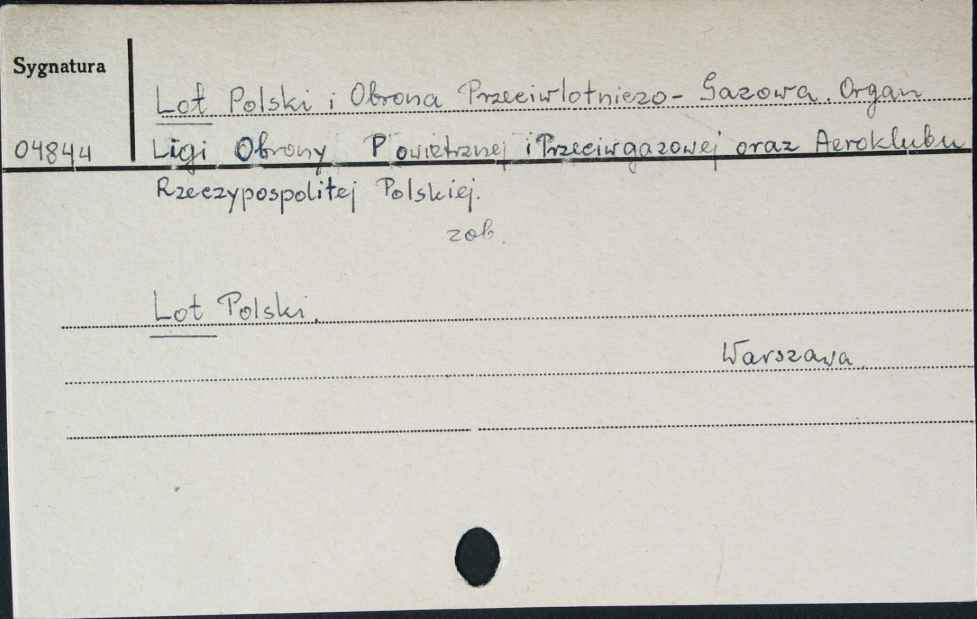 Sygnatura
Lot Polski i Obrona Przeciwlotniczo-Gazowa. Organ
04844 Ligi Obrony Powietrznej i Przeciwgazowej oraz Aeroklubu
Rzeczypospolitej Polskiej.
zob.
Lot Polski.
Warszawa.